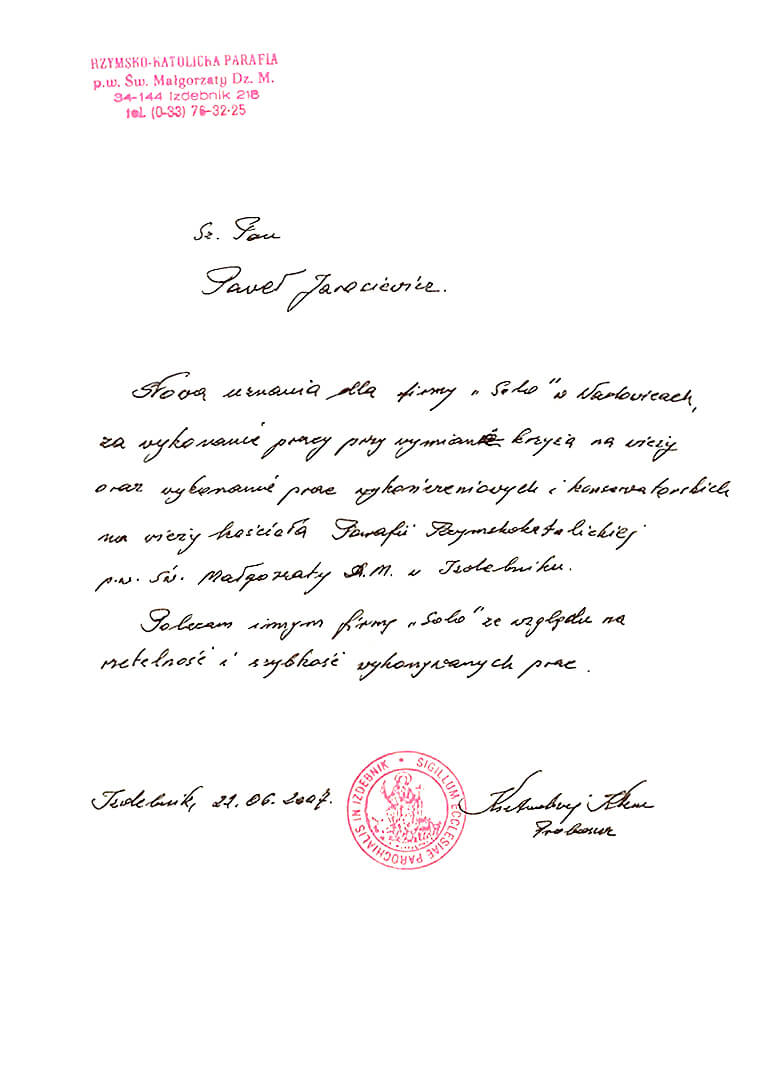 RZYMSKO-KATOLICKA PARAFIA
p.w. Św. Małgorzaty Dz. M.
34-144 Izdebnik 218
tel. (0-33) 76-32-25
Sz. Pan
Paweł Jarociewicz.
Słowa uznania dla firmy „Soko" w Warłowicach,
za wykonanie pracy przy wymianie krzyża na wieży
oraz wykonanie prac wykończeniowych i konserwatorskich
na wieży kościoła Parafii Rzymskokatolickiej
p.w. Św. Małgorzaty D.M. w Izdebniku.
Polecam innym firmy „Soko" ze względu na
rzetelność i szybkość wykonywanych prac.
Izdebnik, 22.06.2007.
SIGILLUM ECCLESIAE PAROCHIALIS IN IZDEBNIK
Proboszcz